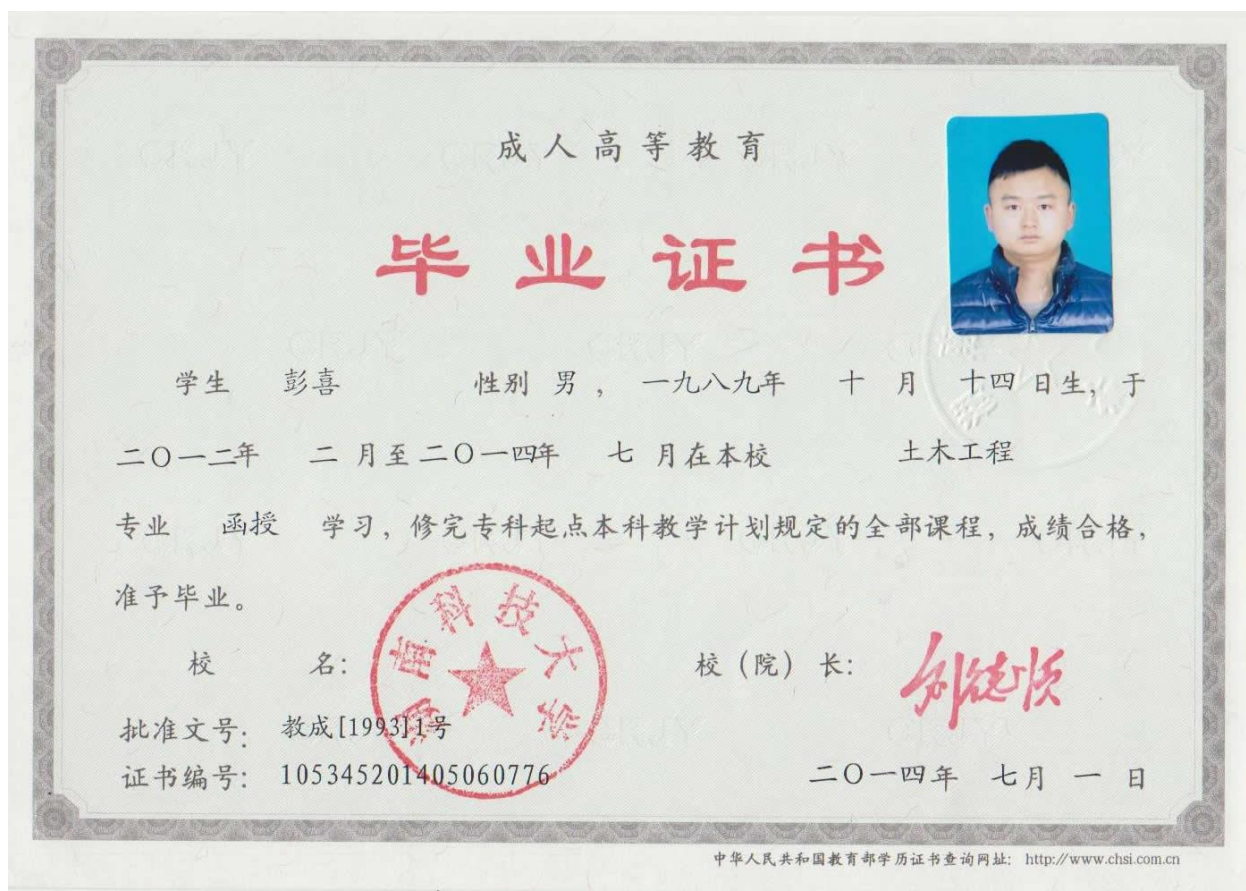 成人高等教育
毕业证书
学生 彭喜 性别 男 , 一九八九年 十 月 十四 日生, 于
二〇一二年 二 月至 二〇一四年 七 月在本校 土木工程
专业 函授 学习, 修完专科起点本科教学计划规定的全部课程, 成绩合格,
准予毕业。
校 名: 湖南科技大学 校 (院) 长: 刘德顺
批准文号: 教成[1993]1号
证书编号: 105345201405060776 二〇一四年 七月 一 日
中华人民共和国教育部学历证书查询网址: http://www.chsi.com.cn